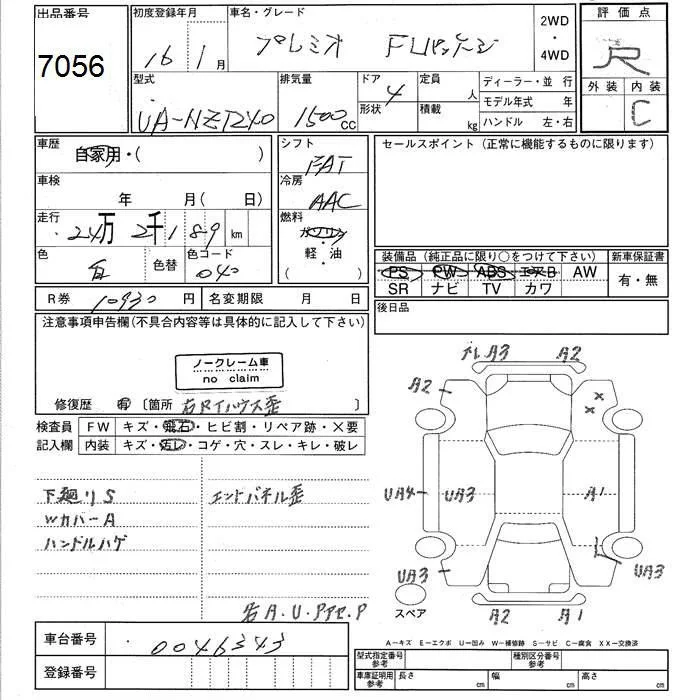 出品番号
7056
初度登録年月
16年1月
車名・グレード
プレミオ Fリパッケージ
2WD
・
4WD
評価点
R
外装 内装
C
型式
UA-NZT240
排気量
1500cc
ドア
4
形状
定員
人
積載
kg
ディーラー・並行
モデル年式 年
ハンドル 左・右
車歴
自家用・( )
車検
年 月( 日)
走行
24万2千189km
色
白
色替
色コード
040
シフト
FAT
冷房
AAC
燃料
ガソリン
軽・油
( )
セールスポイント(正常に機能するものに限ります)
装備品(純正品に限り○をつけて下さい)
新車保証書
PS PW ABS エアB AW
有・無
SR ナビ TV カワ
後日品
R券 10930円
名変期限 月 日
注意事項申告欄(不具合内容等は具体的に記入して下さい)
ノークレーム車
no claim
修復歴 有 〔箇所 右Rタイハウス歪 〕
検査員
記入欄
FW キズ・飛石・ヒビ割・リペア跡・X要
内装 キズ・汚レ・コゲ・穴・スレ・キレ・破レ
下廻リS
エンドパネル歪
WカバーA
ハンドルハゲ
右A.U.PアセP
車台番号
0046343
登録番号
ナレ A3 A2
A2
X
X
UA4 UA3 A1
UA3 UA3
スペア
A2 A1
A-キズ E-エクボ U-凹み W-補修跡 S-サビ C-腐食 XX-交換済
型式指定番号
参考
種別区分番号
参考
車庫証明用
参考
長さ cm
幅 cm
高さ cm